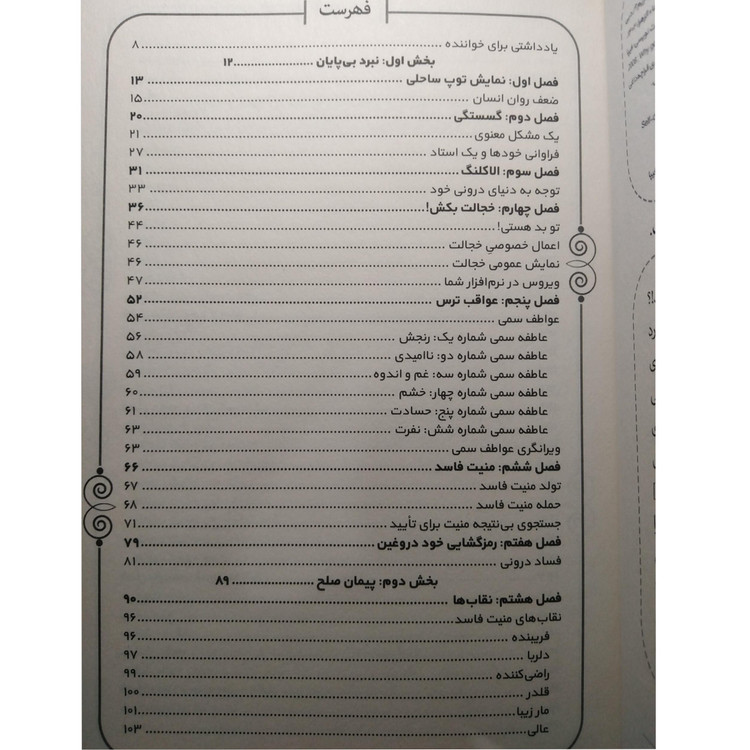 فهرست
یادداشتی برای خواننده ........ ۸
بخش اول: نبرد بی‌پایان ........ ۱۲
فصل اول: نمایش توپ ساحلی ........ ۱۳
ضعف روان انسان ........ ۱۵
فصل دوم: گسستگی ........ ۲۰
یک مشکل معنوی ........ ۲۱
فراوانی خودها و یک استاد ........ ۲۷
فصل سوم: الاکلنگ ........ ۳۱
توجه به دنیای درونی خود ........ ۳۳
فصل چهارم: خجالت بکش! ........ ۳۶
تو بد هستی! ........ ۴۴
اعمال خصوصیِ خجالت ........ ۴۶
نمایش عمومی خجالت ........ ۴۶
ویروس در نرم‌افزار شما ........ ۴۷
فصل پنجم: عواقب ترس ........ ۵۲
عواطف سمی ........ ۵۴
عاطفه سمی شماره یک: رنجش ........ ۵۶
عاطفه سمی شماره دو: ناامیدی ........ ۵۸
عاطفه سمی شماره سه: غم و اندوه ........ ۵۹
عاطفه سمی شماره چهار: خشم ........ ۶۰
عاطفه سمی شماره پنج: حسادت ........ ۶۱
عاطفه سمی شماره شش: نفرت ........ ۶۳
ویرانگری عواطف سمی ........ ۶۳
فصل ششم: منیت فاسد ........ ۶۶
تولد منیت فاسد ........ ۶۷
حمله منیت فاسد ........ ۶۸
جستجوی بی‌نتیجه منیت برای تأیید ........ ۷۱
فصل هفتم: رمزگشایی خود دروغین ........ ۷۹
فساد درونی ........ ۸۱
بخش دوم: پیمان صلح ........ ۸۹
فصل هشتم: نقاب‌ها ........ ۹۰
نقاب‌های منیت فاسد ........ ۹۶
فریبنده ........ ۹۶
دلربا ........ ۹۷
راضی‌کننده ........ ۹۹
قلدر ........ ۱۰۰
مار زیبا ........ ۱۰۱
عالی ........ ۱۰۳